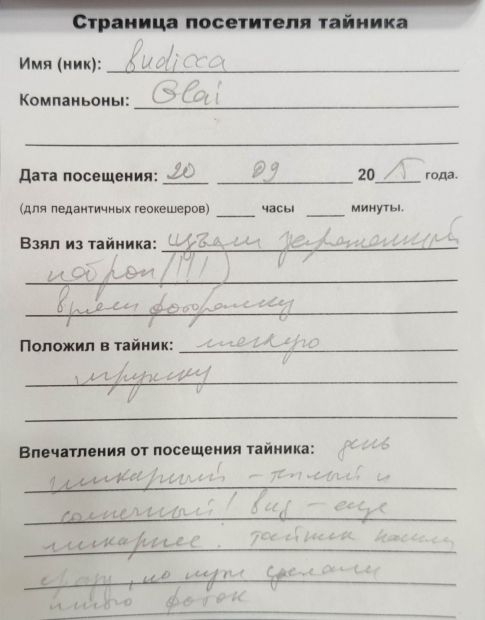 Страница посетителя тайника
Имя (ник): Budicca
Компаньоны: Glai
Дата посещения: 20 09 2015 года.
(для педантичных геокешеров) ____ часы ____ минуты.
Взял из тайника: изъяли заряженный
патрон (!!!)
взяли фоторамку
Положил в тайник: мягкую
игрушку
Впечатления от посещения тайника: день
шикарный - тёплый и
солнечный! Вид - еще
шикарнее. Тайник нашли
сразу, но сделали
фоток